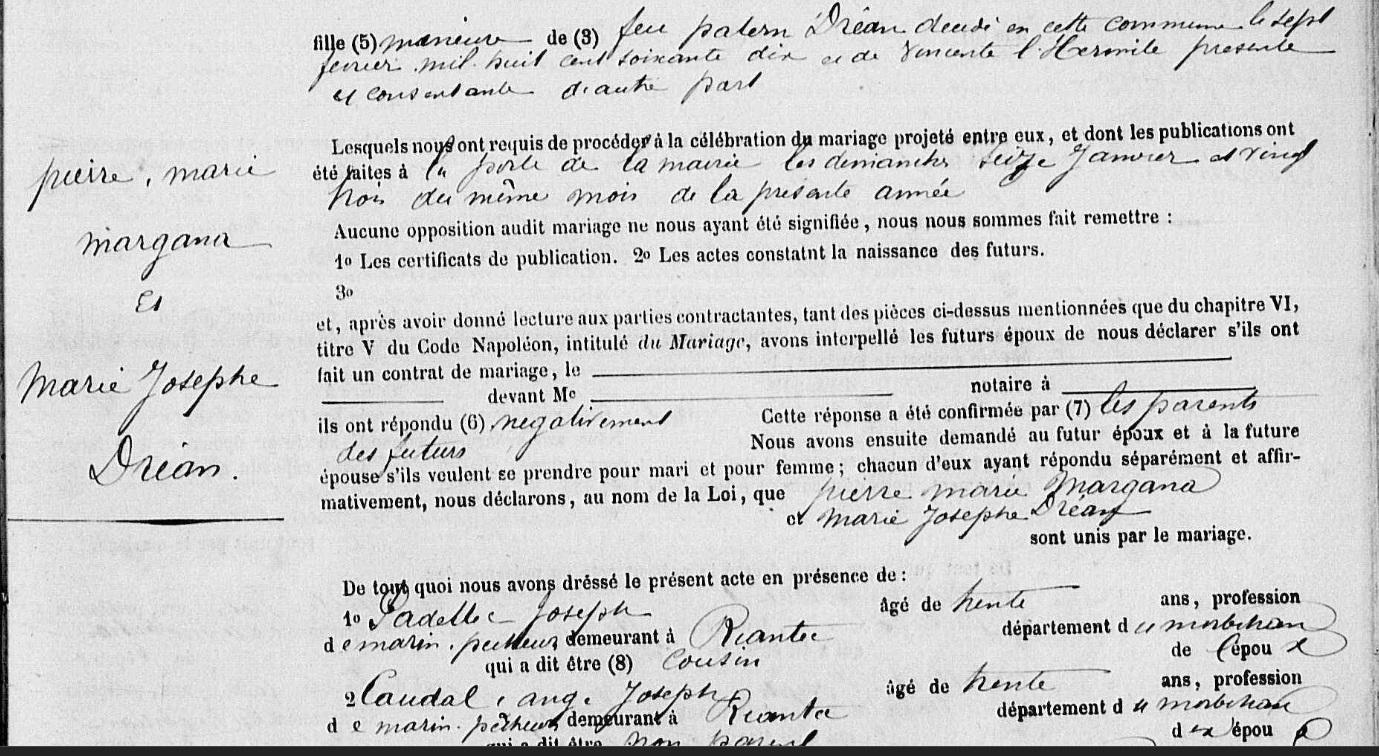 fille (5) mineure de (3) feu patern Dréan décédé en cette commune le sept
fevrier mil huit cent soixante dix et de Vincente l'Hermite presente
et consentante d'autre part
Lesquels nous ont requis de procéder à la célébration du mariage projeté entre eux, et dont les publications ont
été faites à la porte de la mairie les dimanches seize Janvier et vingt
trois du même mois de la présente année
Aucune opposition audit mariage ne nous ayant été signifiée, nous nous sommes fait remettre :
1o Les certificats de publication. 2o Les actes constatnt la naissance des futurs.
3o
et, après avoir donné lecture aux parties contractantes, tant des pièces ci-dessus mentionnées que du chapitre VI,
titre V du Code Napoléon, intitulé du Mariage, avons interpellé les futurs époux de nous déclarer s'ils ont
fait un contrat de mariage, le
devant Me notaire à
ils ont répondu (6) négativement Cette réponse a été confirmée par (7) les parents
des futurs Nous avons ensuite demandé au futur époux et à la future
épouse s'ils veulent se prendre pour mari et pour femme ; chacun d'eux ayant répondu séparément et affir-
mativement, nous déclarons, au nom de la Loi, que pierre marie Margana
et Marie Josephe Dréan
sont unis par le mariage.
De tout quoi nous avons dréssé le présent acte en présence de :
1o Padellec Joseph âgé de trente ans, profession
de marin pecheur demeurant à Riantec département du morbihan
qui a dit être (8) cousin de l'époux
2 Caudal, ange Joseph âgé de trente ans, profession
de marin pecheur demeurant à Riantec département du morbihan
qui a dit être non parent des époux
pierre, marie
margana
Et
Marie Josephe
Dréan.